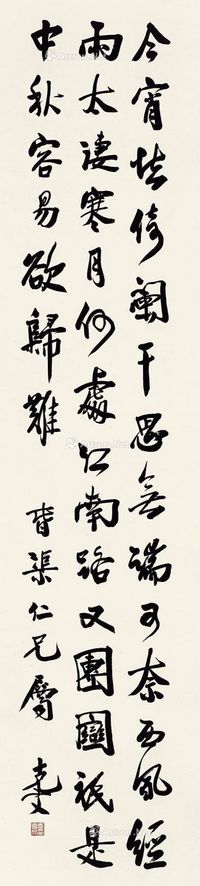 今宵怯倚闌干思無端可奈西風經
雨太淒寒月何處江南路又團圞祇是
中秋容易欲歸難 渠仁兄屬 克文